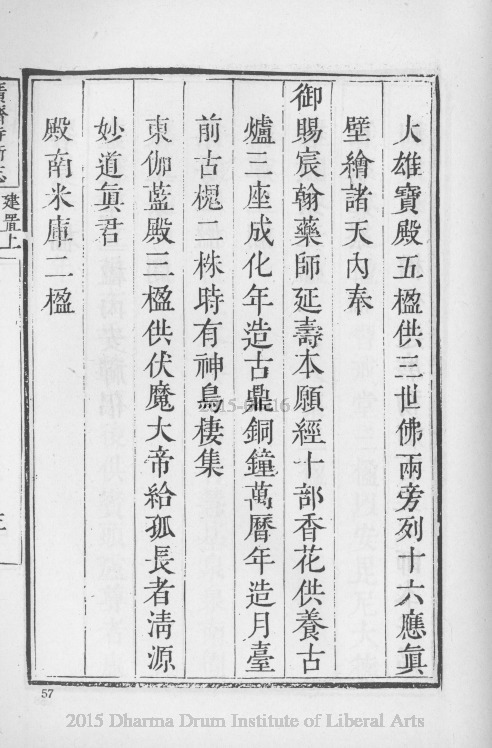 大雄寶殿五楹供三世佛兩旁列十六應眞
壁繪諸天內奉
御賜宸翰藥師延壽本願經十部香花供養古
爐三座成化年造古鼎銅鐘萬曆年造月臺
前古槐二株時有神鳥棲集
東伽藍殿三楹供伏魔大帝給孤長者清源
妙道眞君
殿南米庫二楹
建置上
57
2015 Dharma Drum Institute of Liberal Arts